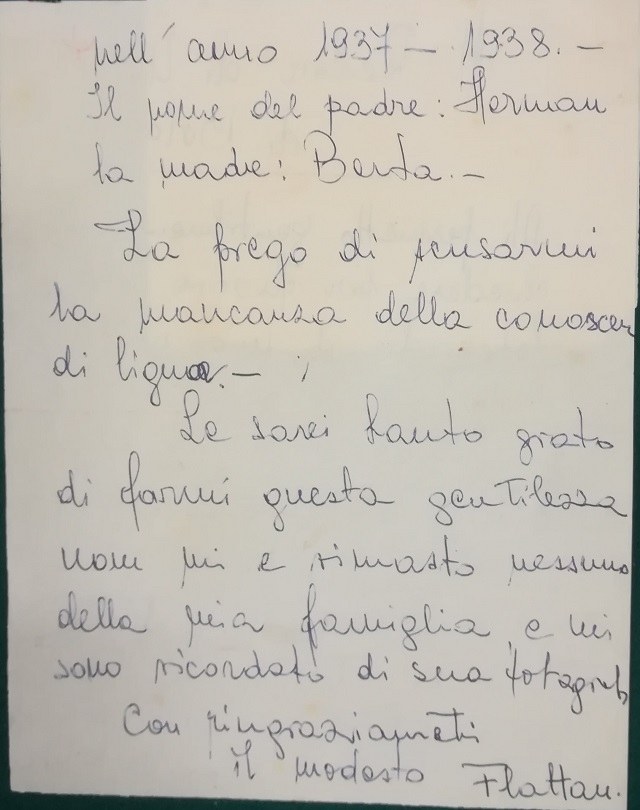 nell'anno 1937 – 1938. –
Il nome del padre: Herman
la madre: Berta. –
La prego di pensarmi
la mancanza della conoscen
di ligua. –
Le sarei tanto grato
di farmi questa gentilezza
non mi e rimasto nessuno
della mia famiglia, e mi
sono ricordato di sua fotograf
Con ringraziameti
il modesto Flattau.